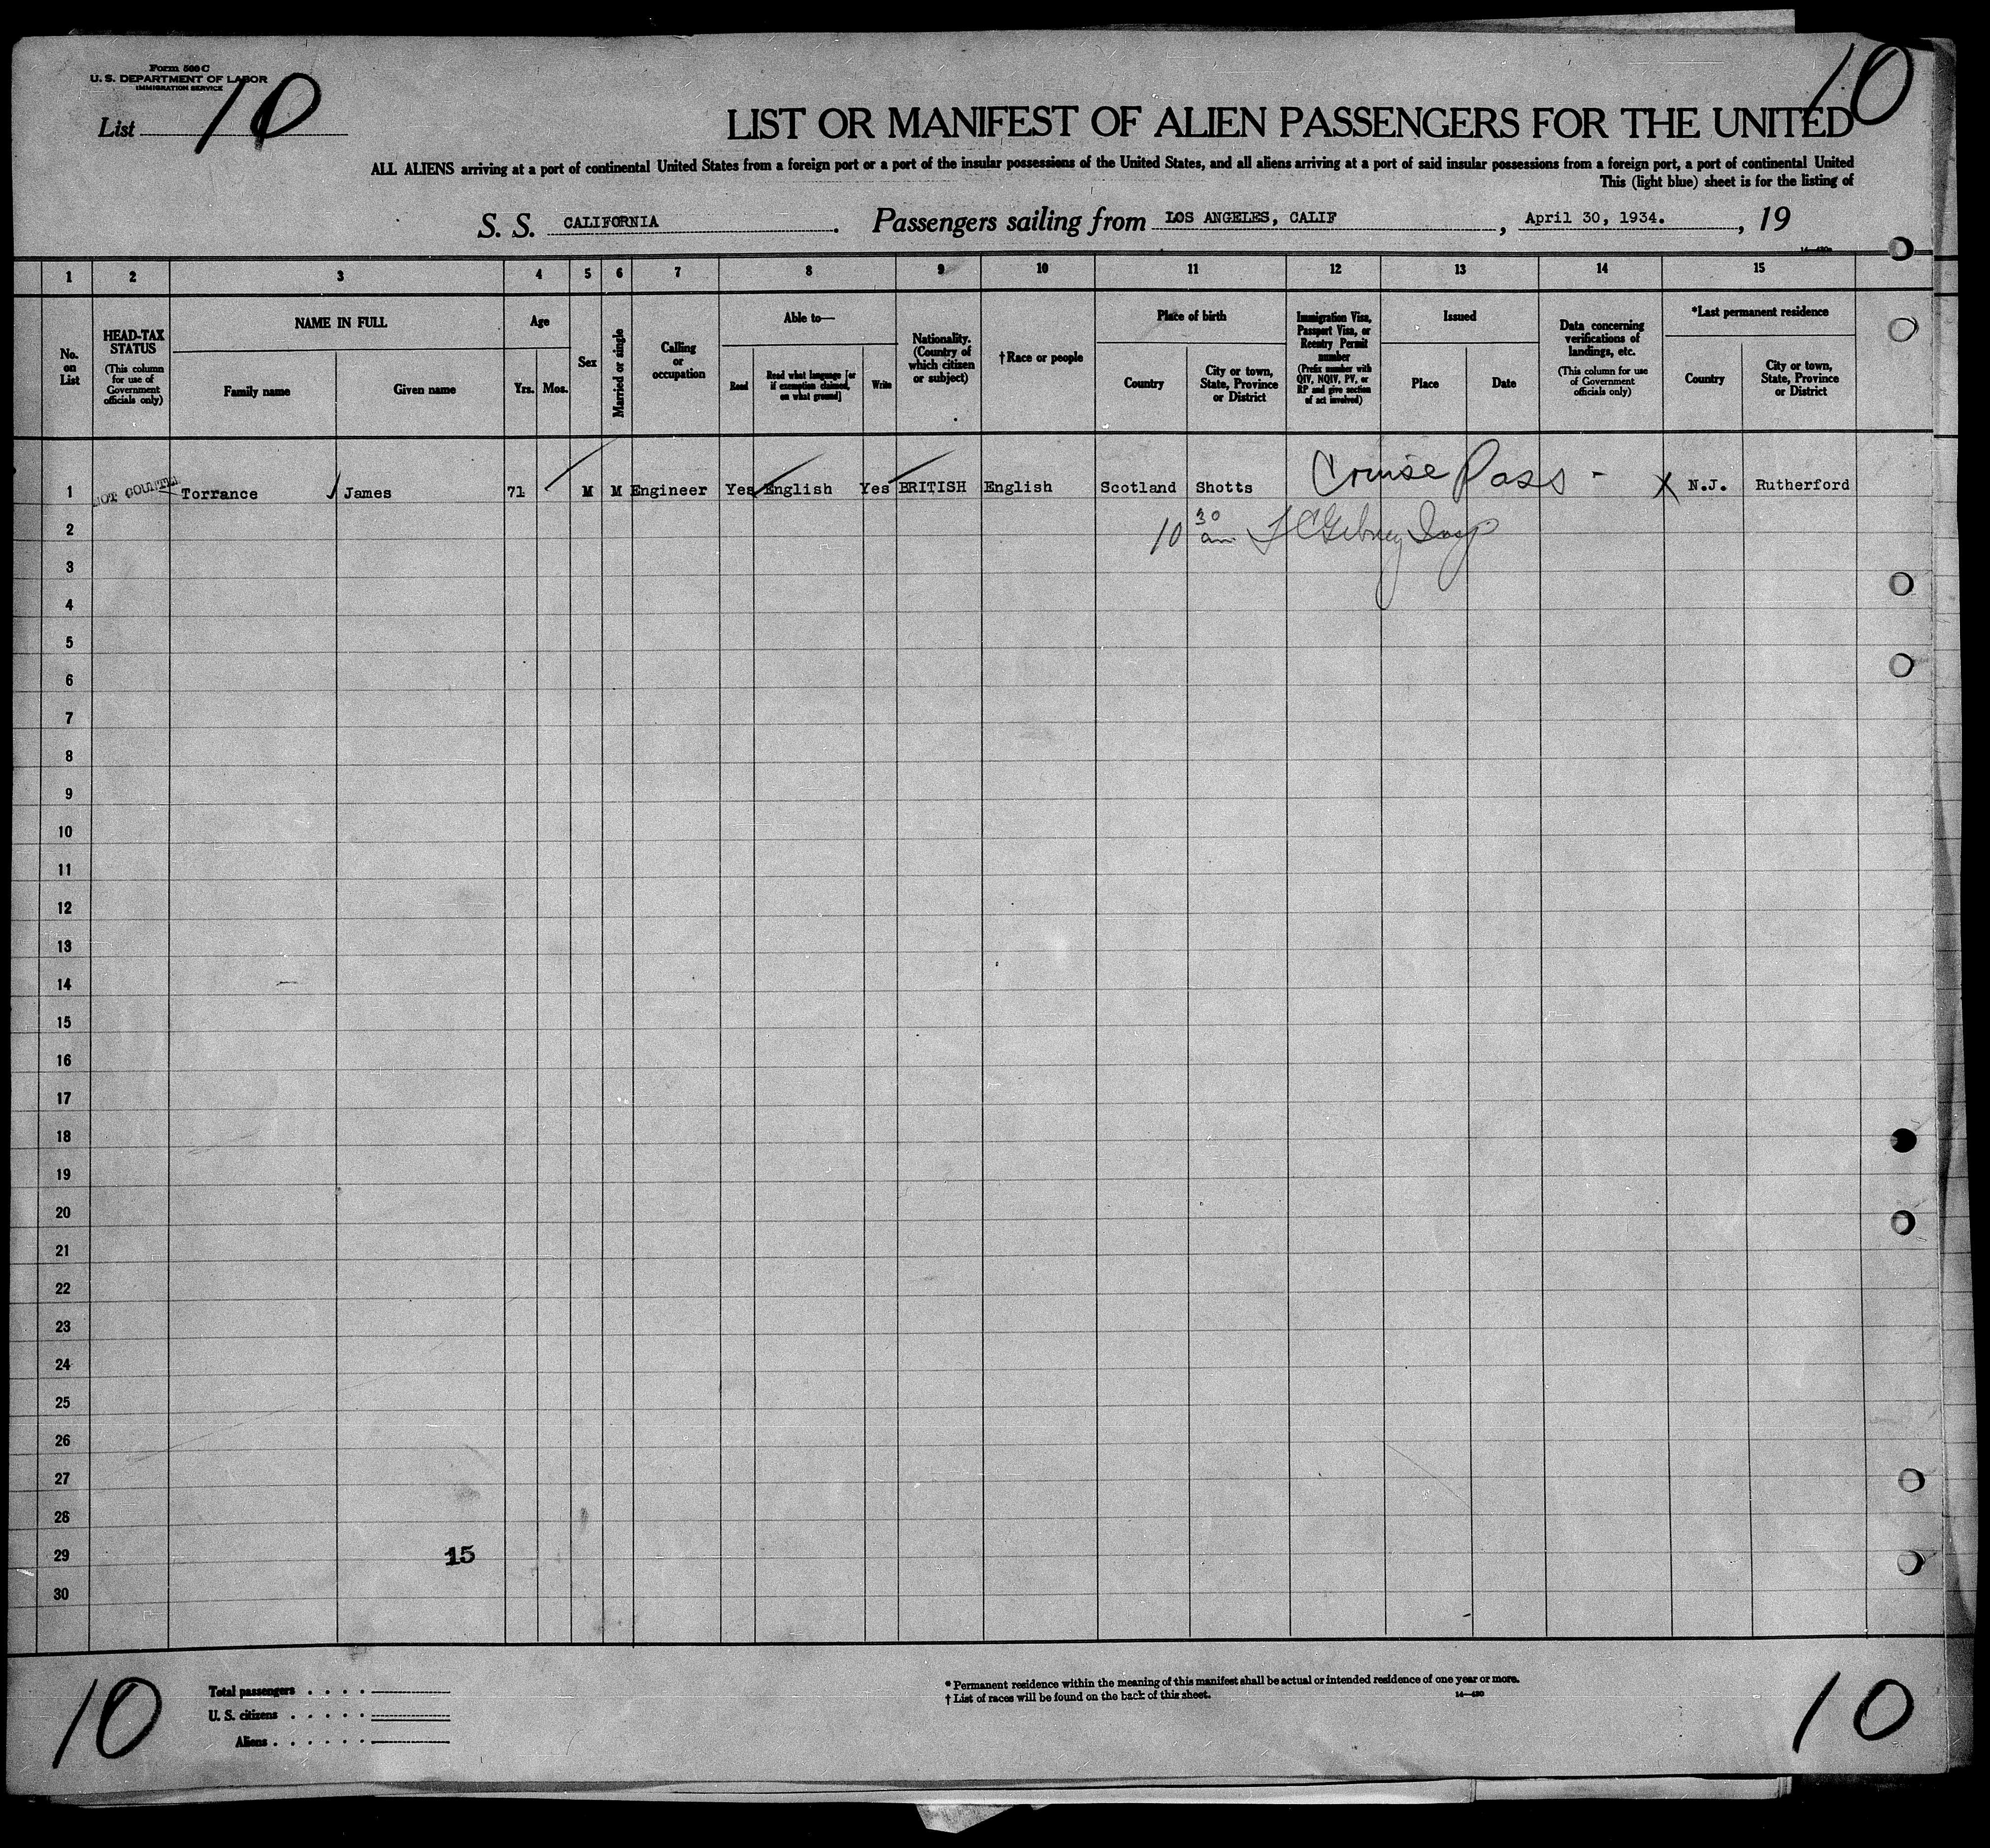 Form 500 C
U. S. DEPARTMENT OF LABOR
IMMIGRATION SERVICE
List 10
10
LIST OR MANIFEST OF ALIEN PASSENGERS FOR THE UNITED
ALL ALIENS arriving at a port of continental United States from a foreign port or a port of the insular possessions of the United States, and all aliens arriving at a port of said insular possessions from a foreign port, a port of continental United
This (light blue) sheet is for the listing of
S. S. CALIFORNIA. Passengers sailing from LOS ANGELES, CALIF, April 30, 1934., 19
1 2 3 4 5 6 7 8 9 10 11 12 13 14 15
No. on List
HEAD-TAX STATUS
(This column for use of Government officials only)
NAME IN FULL
Family name
Given name
Age
Yrs.
Mos.
Sex
Married or single
Calling or occupation
Able to—
Read
Read what language [or if exemption claimed, on what ground]
Write
Nationality. (Country of which citizen or subject)
†Race or people
Place of birth
Country
City or town, State, Province or District
Immigration Visa, Passport Visa, or Reentry Permit number
(Prefix number with QIV, NQIV, PV, or RP and give section of act involved)
Issued
Place
Date
Data concerning verifications of landings, etc.
(This column for use of Government officials only)
*Last permanent residence
Country
City or town, State, Province or District
1 NOT COUNTED Torrance James 71 M M Engineer Yes English Yes BRITISH English Scotland Shotts Cruise Pass - X N.J. Rutherford
2 10 30 am
3
4
5
6
7
8
9
10
11
12
13
14
15
16
17
18
19
20
21
22
23
24
25
26
27
28
29 15
30
10
Total passengers
U. S. citizens
Aliens
* Permanent residence within the meaning of this manifest shall be actual or intended residence of one year or more.
† List of races will be found on the back of this sheet.
14—430
10